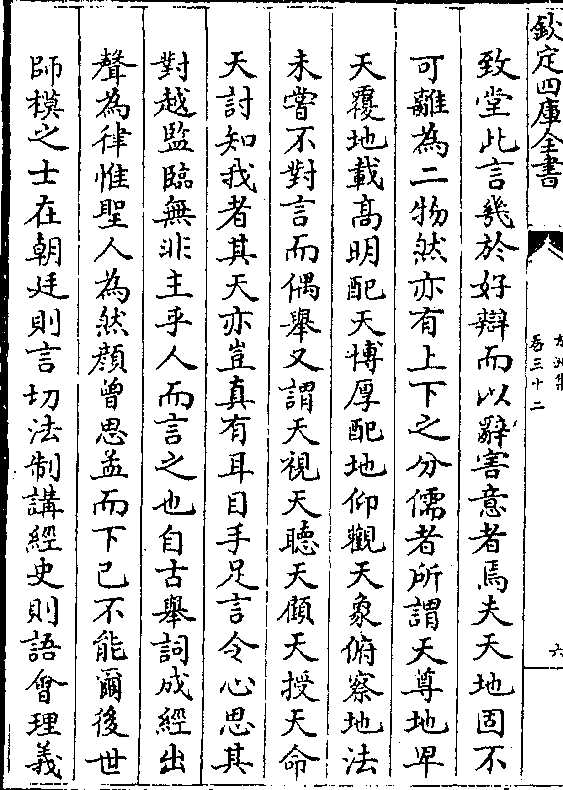 欽定四庫全書
卷三十二
六
致堂此言幾於好辯而以辭害意者焉夫天地固不
可離為二物然亦有上下之分儒者所謂天尊地卑
天覆地載髙明配天博厚配地仰觀天象俯察地法
未嘗不對言而偶舉又謂天視天聽天顧天授天命
天討知我者其天亦豈真有耳目手足言令心思其
對越監臨無非主乎人而言之也自古舉詞成經出
聲為律惟聖人為然顔曾思孟而下已不能爾後世
師模之士在朝廷則言切法制講經史則語㑹理義